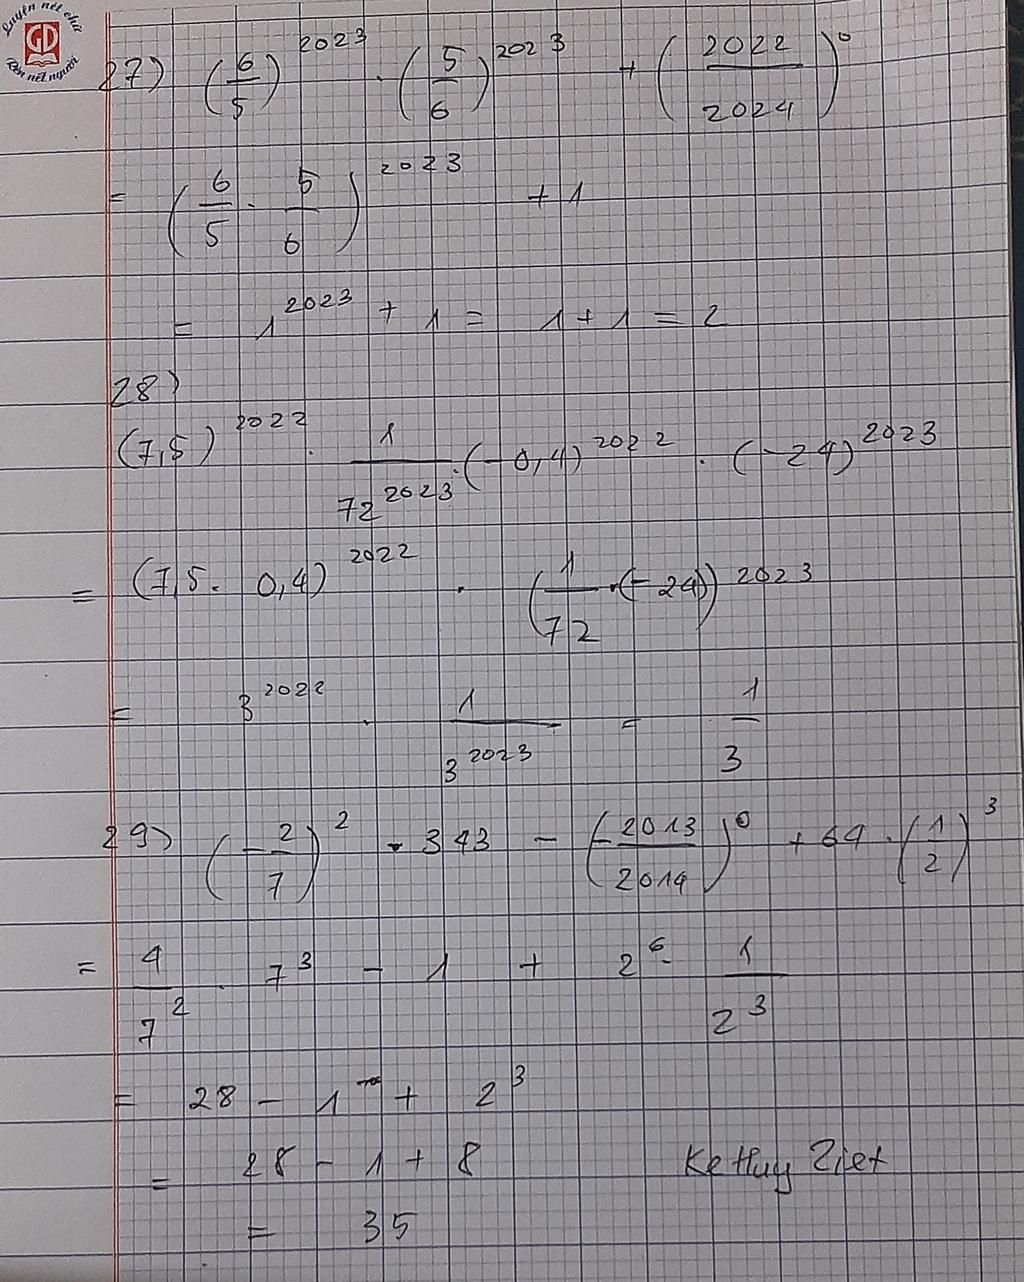 Luyện nét chữ
GD
Rèn nét người
27) (6/5)^2023 . (5/6)^2023 + (2022/2024)^0
= (6/5 . 5/6)^2023 + 1
= 1^2023 + 1 = 1 + 1 = 2
28)
(7,5)^2022 . 1/72^2023 . (-0,4)^2022 . (-24)^2023
= (7,5 . 0,4)^2022 . (1/72 . (-24))^2023
= 3^2022 . 1/3^2023 = 1/3
29) (-2/7)^2 . 343 - (-2013/2014)^0 + 64 . (1/2)^3
= 4/7^2 . 7^3 - 1 + 2^6 . 1/2^3
= 28 - 1 + 2^3
= 28 - 1 + 8
= 35